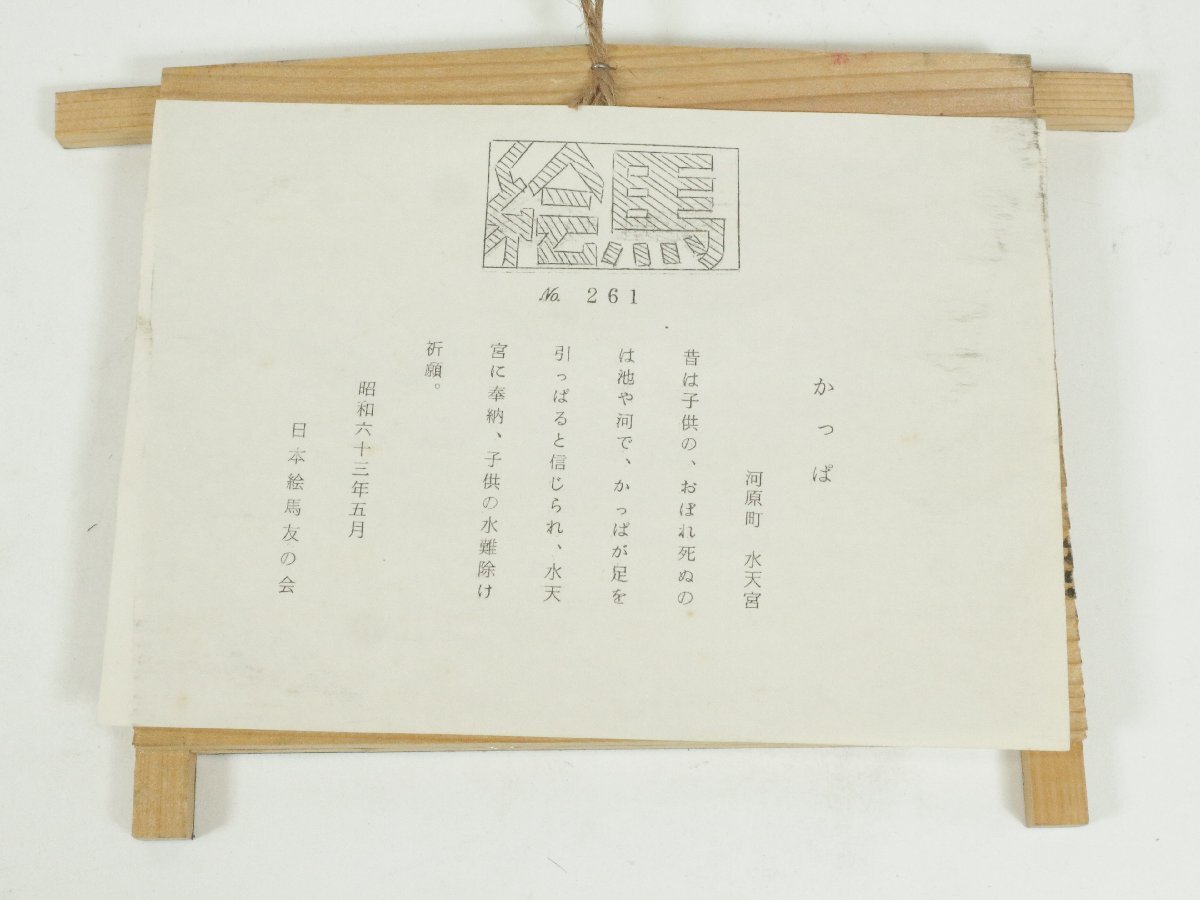 絵馬
No. 261
かっぱ
河原町 水天宮
昔は子供の、おぼれ死ぬの
は池や河で、かっぱが足を
引っぱると信じられ、水天
宮に奉納、子供の水難除け
祈願。
昭和六十三年五月
日本絵馬友の会